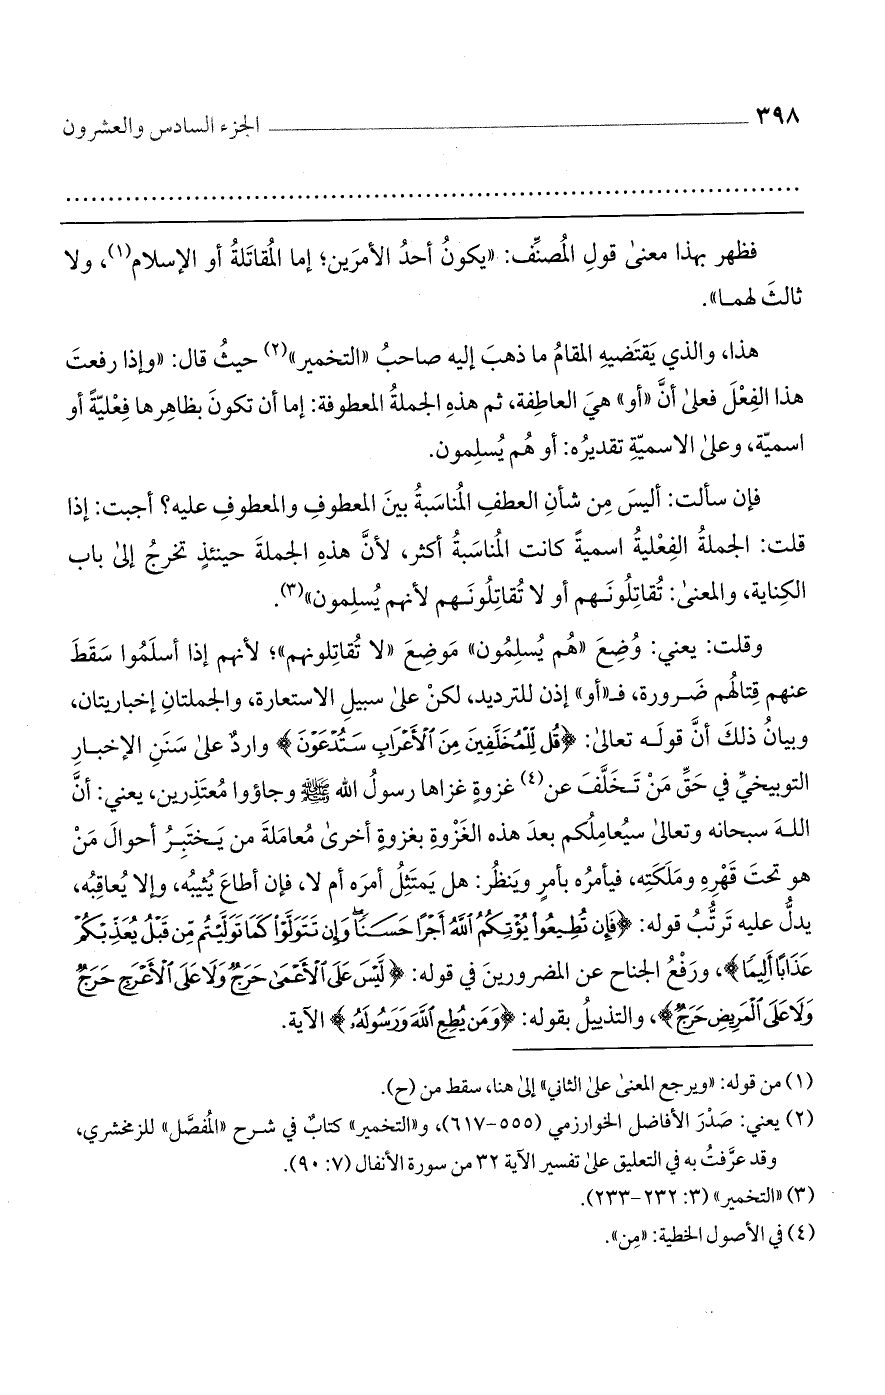 ٣٩٨ ــــــــــ الجزء السادس والعشرون
................................................................................
فظهر بهذا معنىٰ قولِ المُصنِّف: «يكونُ أحدُ الأمرَين؛ إما المُقاتَلةُ أو الإسلام(١)، ولا
ثالثَ لهما».
هذا، والذي يَقتَضيهِ المقامُ ما ذهبَ إليه صاحبُ «التخمير»(٢) حيثُ قال: «وإذا رفعتَ
هذا الفِعْلَ فعلىٰ أنَّ «أو» هيَ العاطِفة، ثم هذهِ الجملةُ المعطوفة: إما أن تكونَ بظاهِرها فِعْليّةً أو
اسميّة، وعلىٰ الاسميّةِ تقديرُه: أو هُم يُسلِمون.
فإن سألت: أليسَ مِن شأنِ العطفِ المُناسَبةُ بينَ المعطوفِ والمعطوفِ عليه؟ أجبت: إذا
قلت: الجملةُ الفِعْليةُ اسميةً كانت المُناسَبةُ أكثر، لأنَّ هذهِ الجملةَ حينئذٍ تخرجُ إلىٰ باب
الكِناية، والمعنىٰ: تُقاتِلُونَهم أو لا تُقاتِلُونَهم لأنهم يُسلِمون»(٣).
وقلت: يعني: وُضِعَ «هُم يُسلِمُون» مَوضِعَ «لا تُقاتِلونهم»؛ لأنهم إذا أسلَمُوا سَقَطَ
عنهم قِتالُهم ضَرورة، فـ«أو» إذن للترديد، لكنْ علىٰ سبيلِ الاستعارة، والجملتانِ إخباريتان،
وبيانُ ذلكَ أنَّ قولَه تعالىٰ: ﴿قُل لِّلْمُخَلَّفِينَ مِنَ ٱلْأَعْرَابِ سَتُدْعَوْنَ﴾ واردٌ علىٰ سَنَنِ الإخبارِ
التوبيخيِّ في حَقِّ مَنْ تَخَلَّفَ عن(٤) غزوةٍ غزاها رسولُ الله ﷺ وجاؤوا مُعتَذِرين، يعني: أنَّ
اللهَ سبحانه وتعالىٰ سيُعامِلُكم بعدَ هذه الغَزْوةِ بغزوةٍ أخرىٰ مُعامَلةَ من يَختَبِرُ أحوالَ مَنْ
هو تحتَ قَهْرِهِ ومَلَكَتِه، فيأمرُه بأمرٍ ويَنظُر: هل يَمتثِلُ أمرَه أم لا، فإن أطاعَ يُثيبُه، وإلا يُعاقِبُه،
يدلُّ عليه تَرتُّبُ قوله: ﴿فَإِن تُطِيعُوا۟ يُؤْتِكُمُ ٱللَّهُ أَجْرًا حَسَنًا ۖ وَإِن تَتَوَلَّوْا۟ كَمَا تَوَلَّيْتُم مِّن قَبْلُ يُعَذِّبْكُمْ
عَذَابًا أَلِيمًا﴾، ورَفْعُ الجناح عن المضرورينَ في قوله: ﴿لَّيْسَ عَلَى ٱلْأَعْمَىٰ حَرَجٌ وَلَا عَلَى ٱلْأَعْرَجِ حَرَجٌ
وَلَا عَلَى ٱلْمَرِيضِ حَرَجٌ﴾، والتذييلُ بقوله: ﴿وَمَن يُطِعِ ٱللَّهَ وَرَسُولَهُۥ﴾ الآية.
(١) من قوله: «ويرجع المعنىٰ علىٰ الثاني» إلىٰ هنا، سقط من (ح).
(٢) يعني: صَدْرَ الأفاضل الخوارزمي (٥٥٥-٦١٧)، و«التخمير» كتابٌ في شرح «المُفصَّل» للزمخشري،
وقد عرَّفتُ به في التعليق علىٰ تفسير الآية ٣٢ من سورة الأنفال (٧: ٩٠).
(٣) «التخمير» (٣: ٢٣٢-٢٣٣).
(٤) في الأصول الخطية: «مِن».